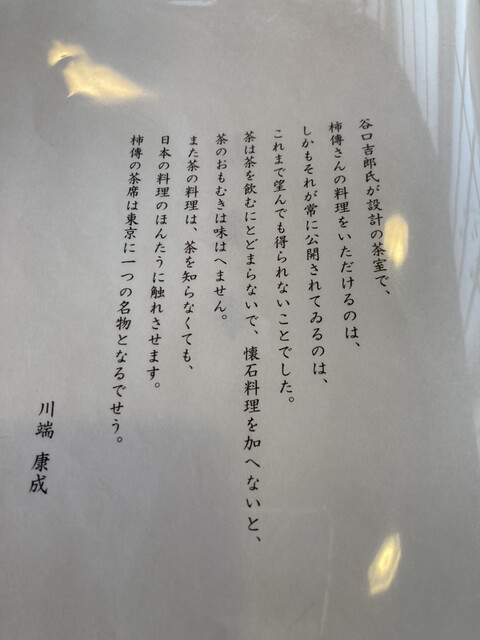 谷口吉郎氏が設計の茶室で、
柿傳さんの料理をいただけるのは、
しかもそれが常に公開されてゐるのは、
これまで望んでも得られないことでした。
茶は茶を飲むにとどまらないで、懐石料理を加へないと、
茶のおもむきは味はへません。
また茶の料理は、茶を知らなくても、
日本の料理のほんたうに触れさせます。
柿傳の茶席は東京に一つの名物となるでせう。
川端 康成